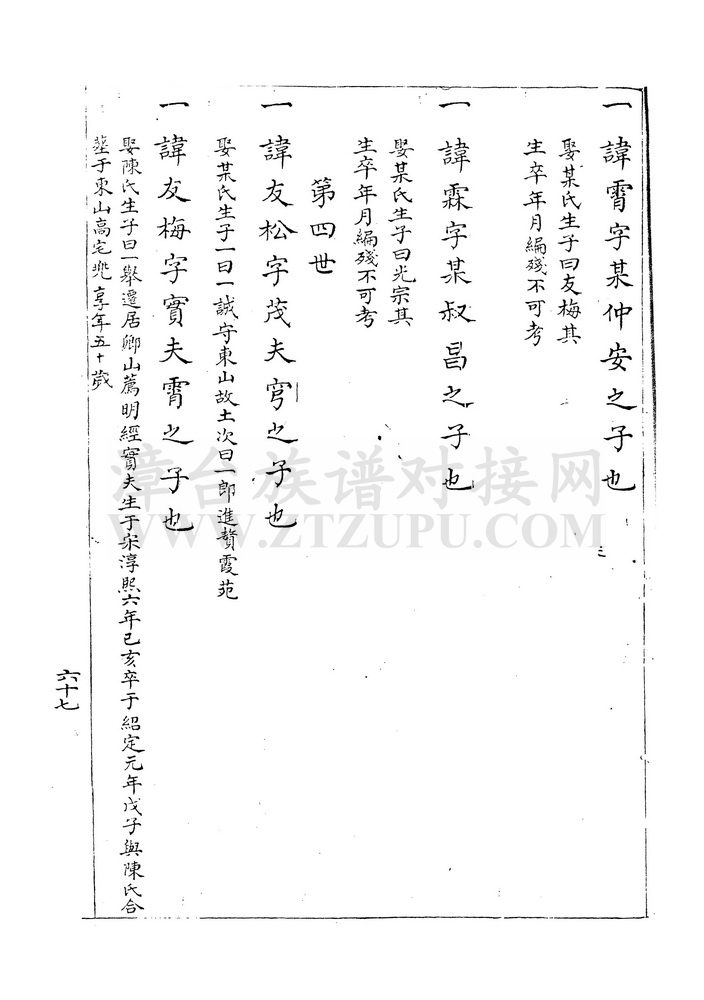 一諱霄字某仲安之子也
娶某氏生子曰友梅其
生卒年月編殘不可考
一諱霖字某叔昌之子也
娶某氏生子曰光宗其
生卒年月編殘不可考
第四世
一諱友松字茂夫之子也
娶某氏生子一曰一誠守東山故土次曰一郎進贅霞苑
一諱友梅字實夫霄之子也
娶陳氏生子曰一舉遷居鄉山薦明經實夫生于宋淳熙六年己亥卒于紹定元年戊子與陳氏合
塟于東山高宅兠享年五十歲
六十七
漳台族谱对接网
WWW.ZTZUPU.COM